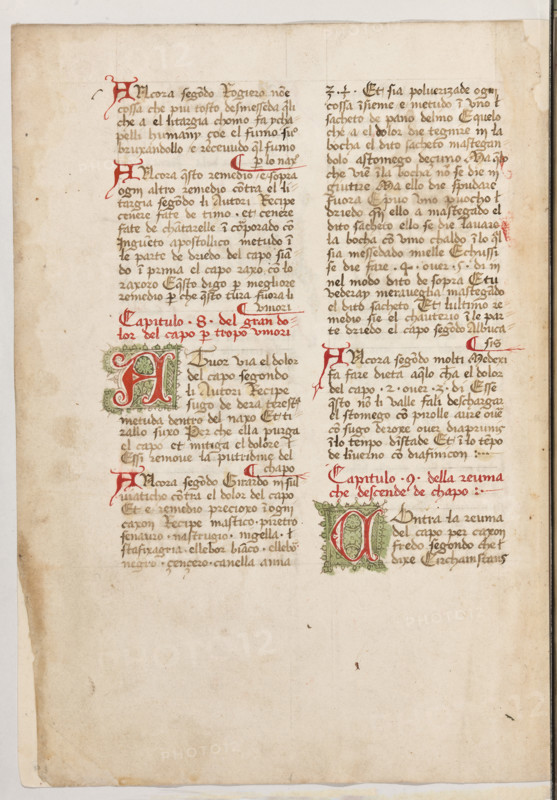 Ancora segōdo Rogiero nōe
cossa che piu tosto desmesseda q̄li
che a el litargia chomo fa y cha
pelli humany çoe el fumo sue
bruxandollo e receuudo q̄l fumo
p lo nax
Ancora q̄sto remedio e sopra
ogni altro remedio cōtra el li
targia segōdo li Autori Recipe
cenere fate de timo · et cenere
fate de chatarelle ī cōrporado cō
Ingueto apostollico metudo ī
le parte de driedo del capo siā
do ī prima el capo raxo cō lo
raxoro Eq̄sto digo p megliore
remedio p che q̄sto cura fuora li
vmori
Capitulo · 8 · del gran do
lor del capo p tropo vmori
A Tuor via el dolor
del capo segondo
li Autori Recipe
sugo de dera terestr̄
metuda dentro del naxo Et ti
rallo suxo Per che ella purga
el capo et mitiga el dolore l
Essi remoue la putridine del
chapo
Ancora segōdo Girardo in sui
uiaticho cōtra el dolor del capo
Et e remedio precioxo ī ogni
caxon Recipe mastico · piretro
senauro · nasturgio · nigella · l
stafixagria · ellebor biāco · ellebō
negro · çençero · canella anna
ʒ · ɟ · Et sia poluerizade ogni
cossa īsieme e metudo ī vno l
sacheto de pano delino Equelo
che a el dolor die tegnire in la
bocha el dito sacheto mastegan
dolo astomego deçuno Ma q̄lo
che vie ī la bocha no se die in
giutire Ma ello die spudare
fuora Epiue vno puocho l
driedo q̄n ello a mastegado el
dito sacheto ello se die lauare
la bocha cō vino chaldo ī lo q̄l
sia messedado mielle Echussi
se die fare · 4 · ouer · 5 · di in
nel modo dito de sopra Etu
vederay merauegha mastegādo
el dito sacheto Et lultimo re
medio sie el chauterio ī le par
te driedo el capo segōdo Albuca
sis
Ancora segōdo molti Medexi
fa fare dieta aq̄lo cha ī el dolor
del capo · 2 · ouer · 3 · di Esse
q̄sto nō li valle fali deschargar
el stomego cō pirolle auree oue
cō sugo deroxe ouer diaprunis
ī lo tempo distade Et ī lo tēpo
de liuerno cō diafinicon :
Capitulo · 9 · della reuma
che descende de chapo :
Contra la reuma
del capo per caxon
fredo segondo che l
dixe Circhainstans
PHOTO12
PHOTO12
PHOTO12